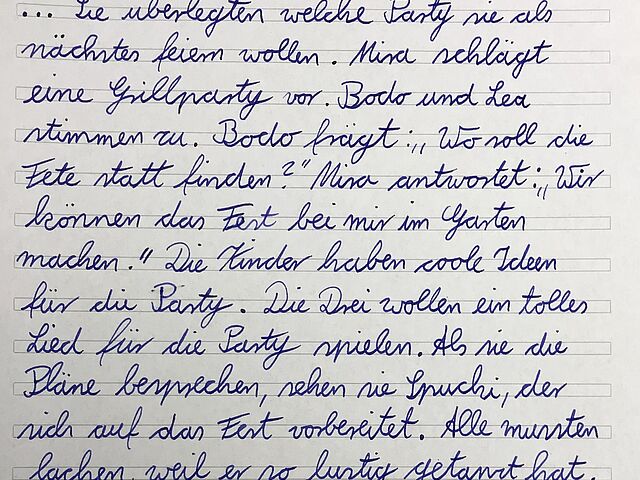 ... Sie überlegten welche Party sie als
nächstes feiern wollen. Mira schlägt
eine Grillparty vor. Bodo und Lea
stimmen zu. Bodo frägt: „Wo soll die
Fete statt finden?" Mira antwortet: „Wir
können das Fest bei mir im Garten
machen." Die Kinder haben coole Ideen
für die Party. Die Drei wollen ein tolles
Lied für die Party spielen. Als sie die
Pläne besprechen, sehen sie Spucki, der
sich auf das Fest vorbereitet. Alle mussten
lachen, weil er so lustig getanzt hat.